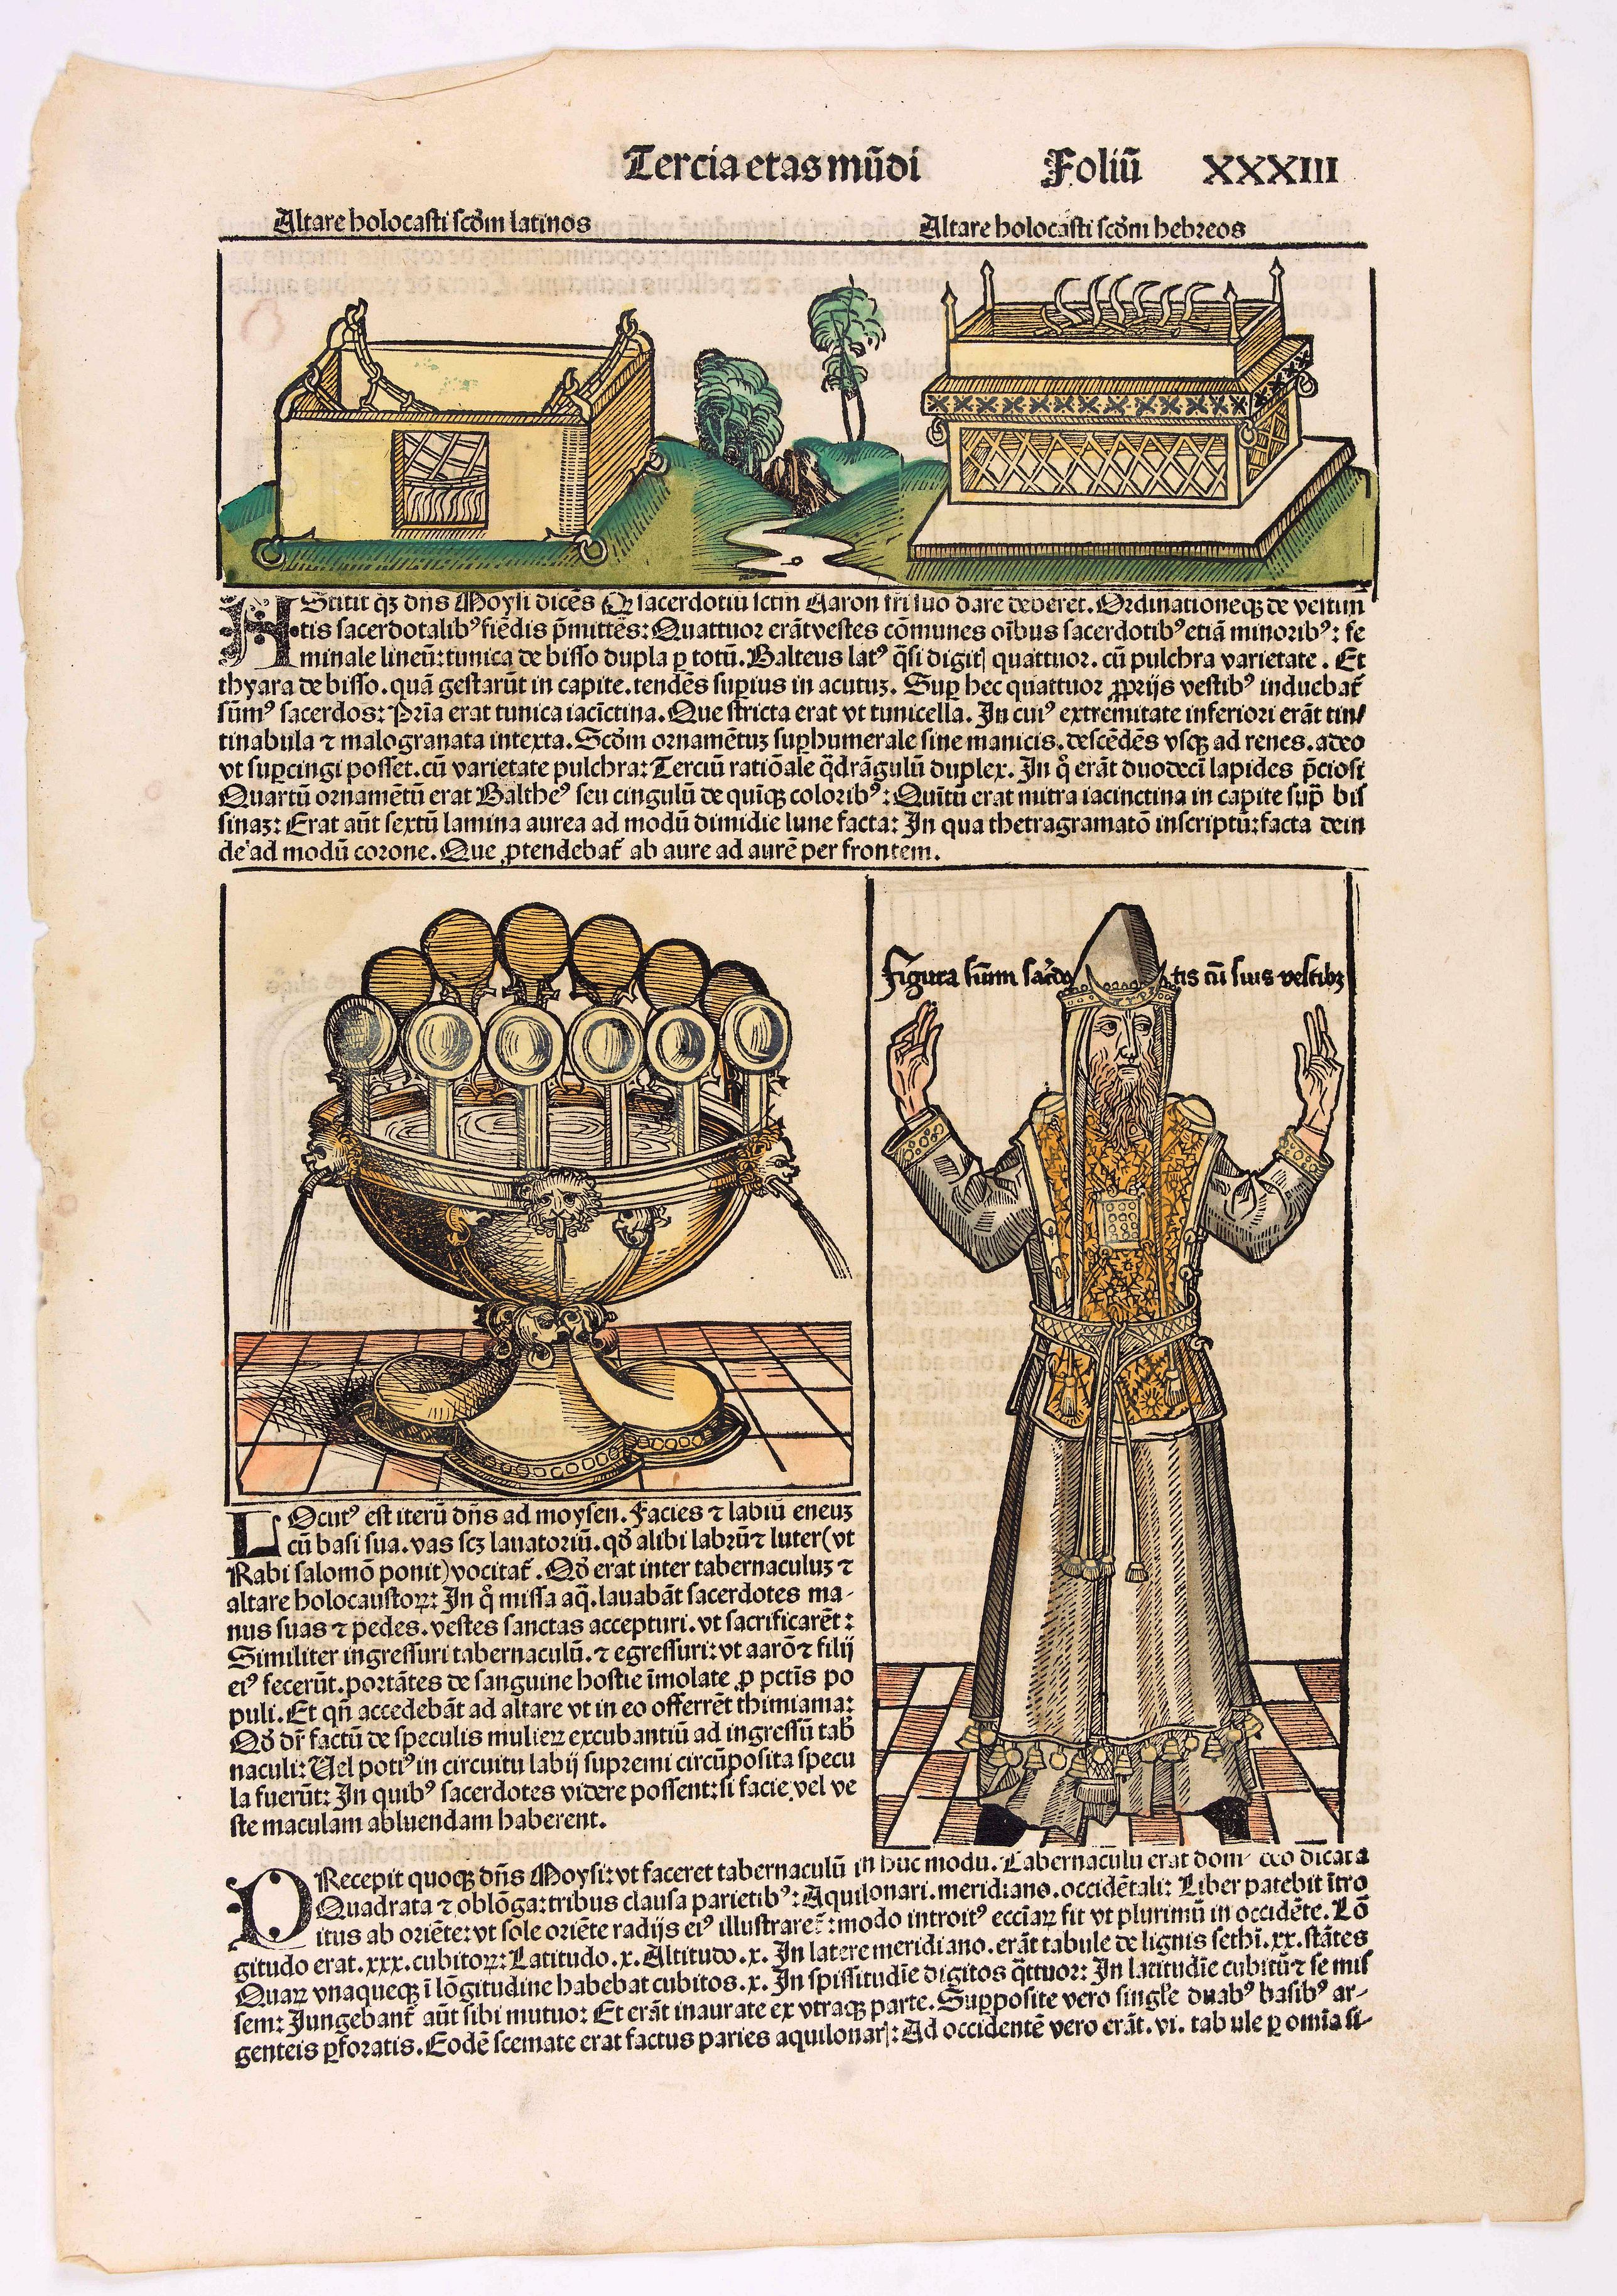 Tercia etas mũdi Foliũ XXXIII
Altare holocasti scd̃m latinos
Altare holocasti scd̃m hebreos
AStitit q̃ꝫ dñs Moysi dicẽs Qꝫ sacerdotiũ sctm̃ Aaron fr̃i suo dare deberet. Ordinationeqꝫ de vestimen
tis sacerdotalibꝰ fiẽdis p̃mittẽs: Quattuor erãt vestes cõmunes oĩbus sacerdotibꝰ etiã minoribꝰ: fe
minale lineũ: tunica de bisso dupla ꝑ totũ. Balteus latꝰ q̃si digitꝭ quattuor. cũ pulchra varietate. Et
thyara de bisso. quã gestarũt in capite. tendẽs suꝑius in acutuꝫ. Suꝑ hec quattuor ꝓprijs vestibꝰ induebat᷑
sũmꝰ sacerdos: Pr̃ia erat tunica iacĩctina. Que stricta erat vt tunicella. In cuiꝰ extremitate inferiori erãt tin/
tinabula ⁊ malogranata intexta. Scd̃m ornamẽtuꝫ suꝑhumerale sine manicis. descẽdẽs vsqꝫ ad renes. adeo
vt suꝑcingi posset. cũ varietate pulchra: Terciũ ratiõale q̃drãgulũ duplex. In q̊ erãt duodecĩ lapides p̃ciosi
Quartũ ornamẽtũ erat Baltheꝰ seu cingulũ de quĩqꝫ coloribꝰ: Quĩtũ erat mitra iacinctina in capite suꝑ bis
sinaꝫ: Erat aũt sextũ lamina aurea ad modũ dimidie lune facta: In qua thetragramatõ inscriptũ: facta dein
de ad modũ corone. Que ꝓtendebat᷑ ab aure ad aurẽ per frontem.
Figura sũm̃i sac̃do
tis cũ suis vestibꝫ
LOcutꝰ est iterũ dñs ad moysen. Facies ⁊ labiũ eneuꝫ
cũ basi sua. vas scꝫ lauatoriũ. qd̓ alibi labrũ ⁊ luter (vt
Rabi salomõ ponit) vocitat᷑. Qd̓ erat inter tabernaculuꝫ ⁊
altare holocaustoꝝ: In q̊ missa aq̃. lauabãt sacerdotes ma-
nus suas ⁊ pedes. vestes sanctas accepturi. vt sacrificarẽt:
Similiter ingressuri tabernaculũ. ⁊ egressuri: vt aarõ ⁊ filij
eiꝰ fecerũt. portãtes de sanguine hostie ĩmolate ꝓ pctĩs po
puli. Et qñ accedebãt ad altare vt in eo offerrẽt thimiama:
Qd̓ dr̃ factũ de speculis mulieꝝ excubantiũ ad ingressũ tab̃
naculi: Uel potiꝰ in circuitu labij supremi circũposita specu
la fuerũt: In quibꝰ sacerdotes videre possent: si facie vel ve
ste maculam abluendam haberent.
PRecepit quoqꝫ dñs Moysi: vt faceret tabernaculũ in huc modũ. Tabernaculũ erat domꝰ deo dicata
Quadrata ⁊ oblõga: tribus clausa parietibꝰ: Aquilonari. meridiano. occidẽtali: Liber patebit ĩtro
itus ab oriẽte: vt sole oriẽte radijs eiꝰ illustraret᷑: modo introitꝰ ecciãꝝ fit vt plurimũ in occidẽte. Lõ
gitudo erat. xxx. cubitoꝝ: Latitudo. x. Altitudo. x. In latere meridiano. erãt tabule de lignis sethĩ. xx. stãtes
Quaꝝ vnaqueqꝫ ĩ lõgitudine habebat cubitos. x. In spissitudĩe digitos q̃ttuor: In latitudĩe cubitũ ⁊ se mis
sem: Jungebant᷑ aũt sibi mutuo: Et erãt inaurate ex vtraqꝫ parte. Supposite vero singl̃e duabꝰ basibꝰ ar-
genteis ꝑforatis. Eodẽ scemate erat factus paries aquilonarꝭ: Ad occidentẽ vero erãt. vi. tabule ꝑ omĩa si-